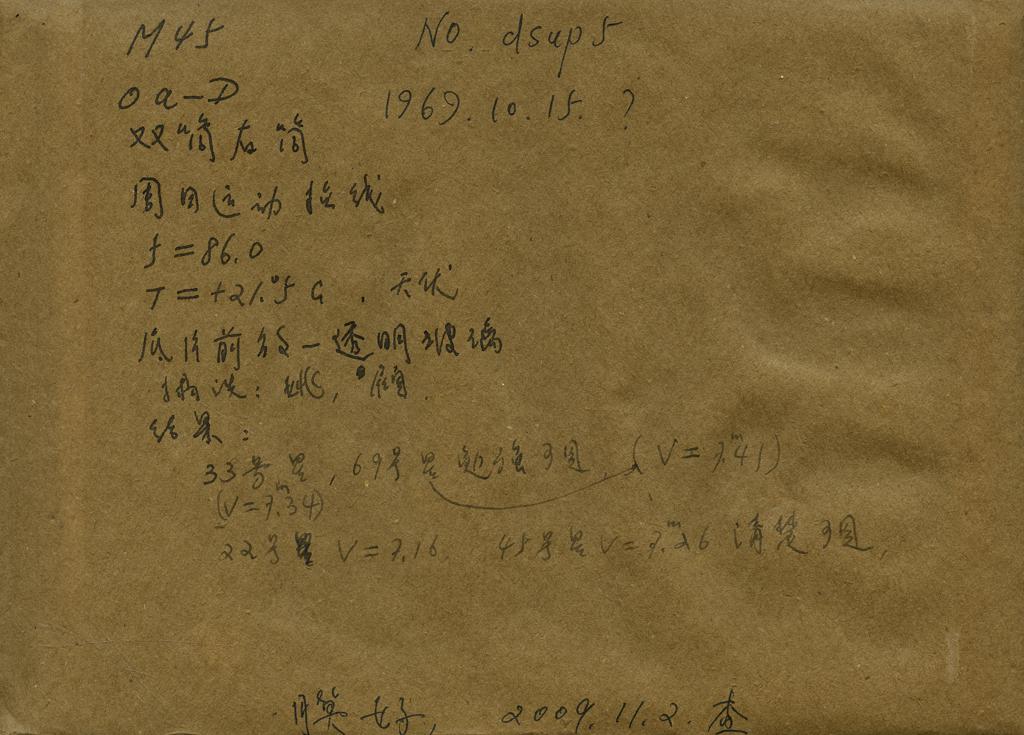 M45 No. dsup5
Oa-D 1969.10.15. ?
双筒左筒
周日运动拉线
f=86.0
T=+21.°5 C, 天优
底片前放一透明玻璃
结果:
33号星, 69号星勉强可见. (V=7.ᵐ41)
(V=7.ᵐ34)
22号星 V=7.16. 45号星 V=7.ᵐ26 清楚可见.
膜好, 2009.11.2. 查